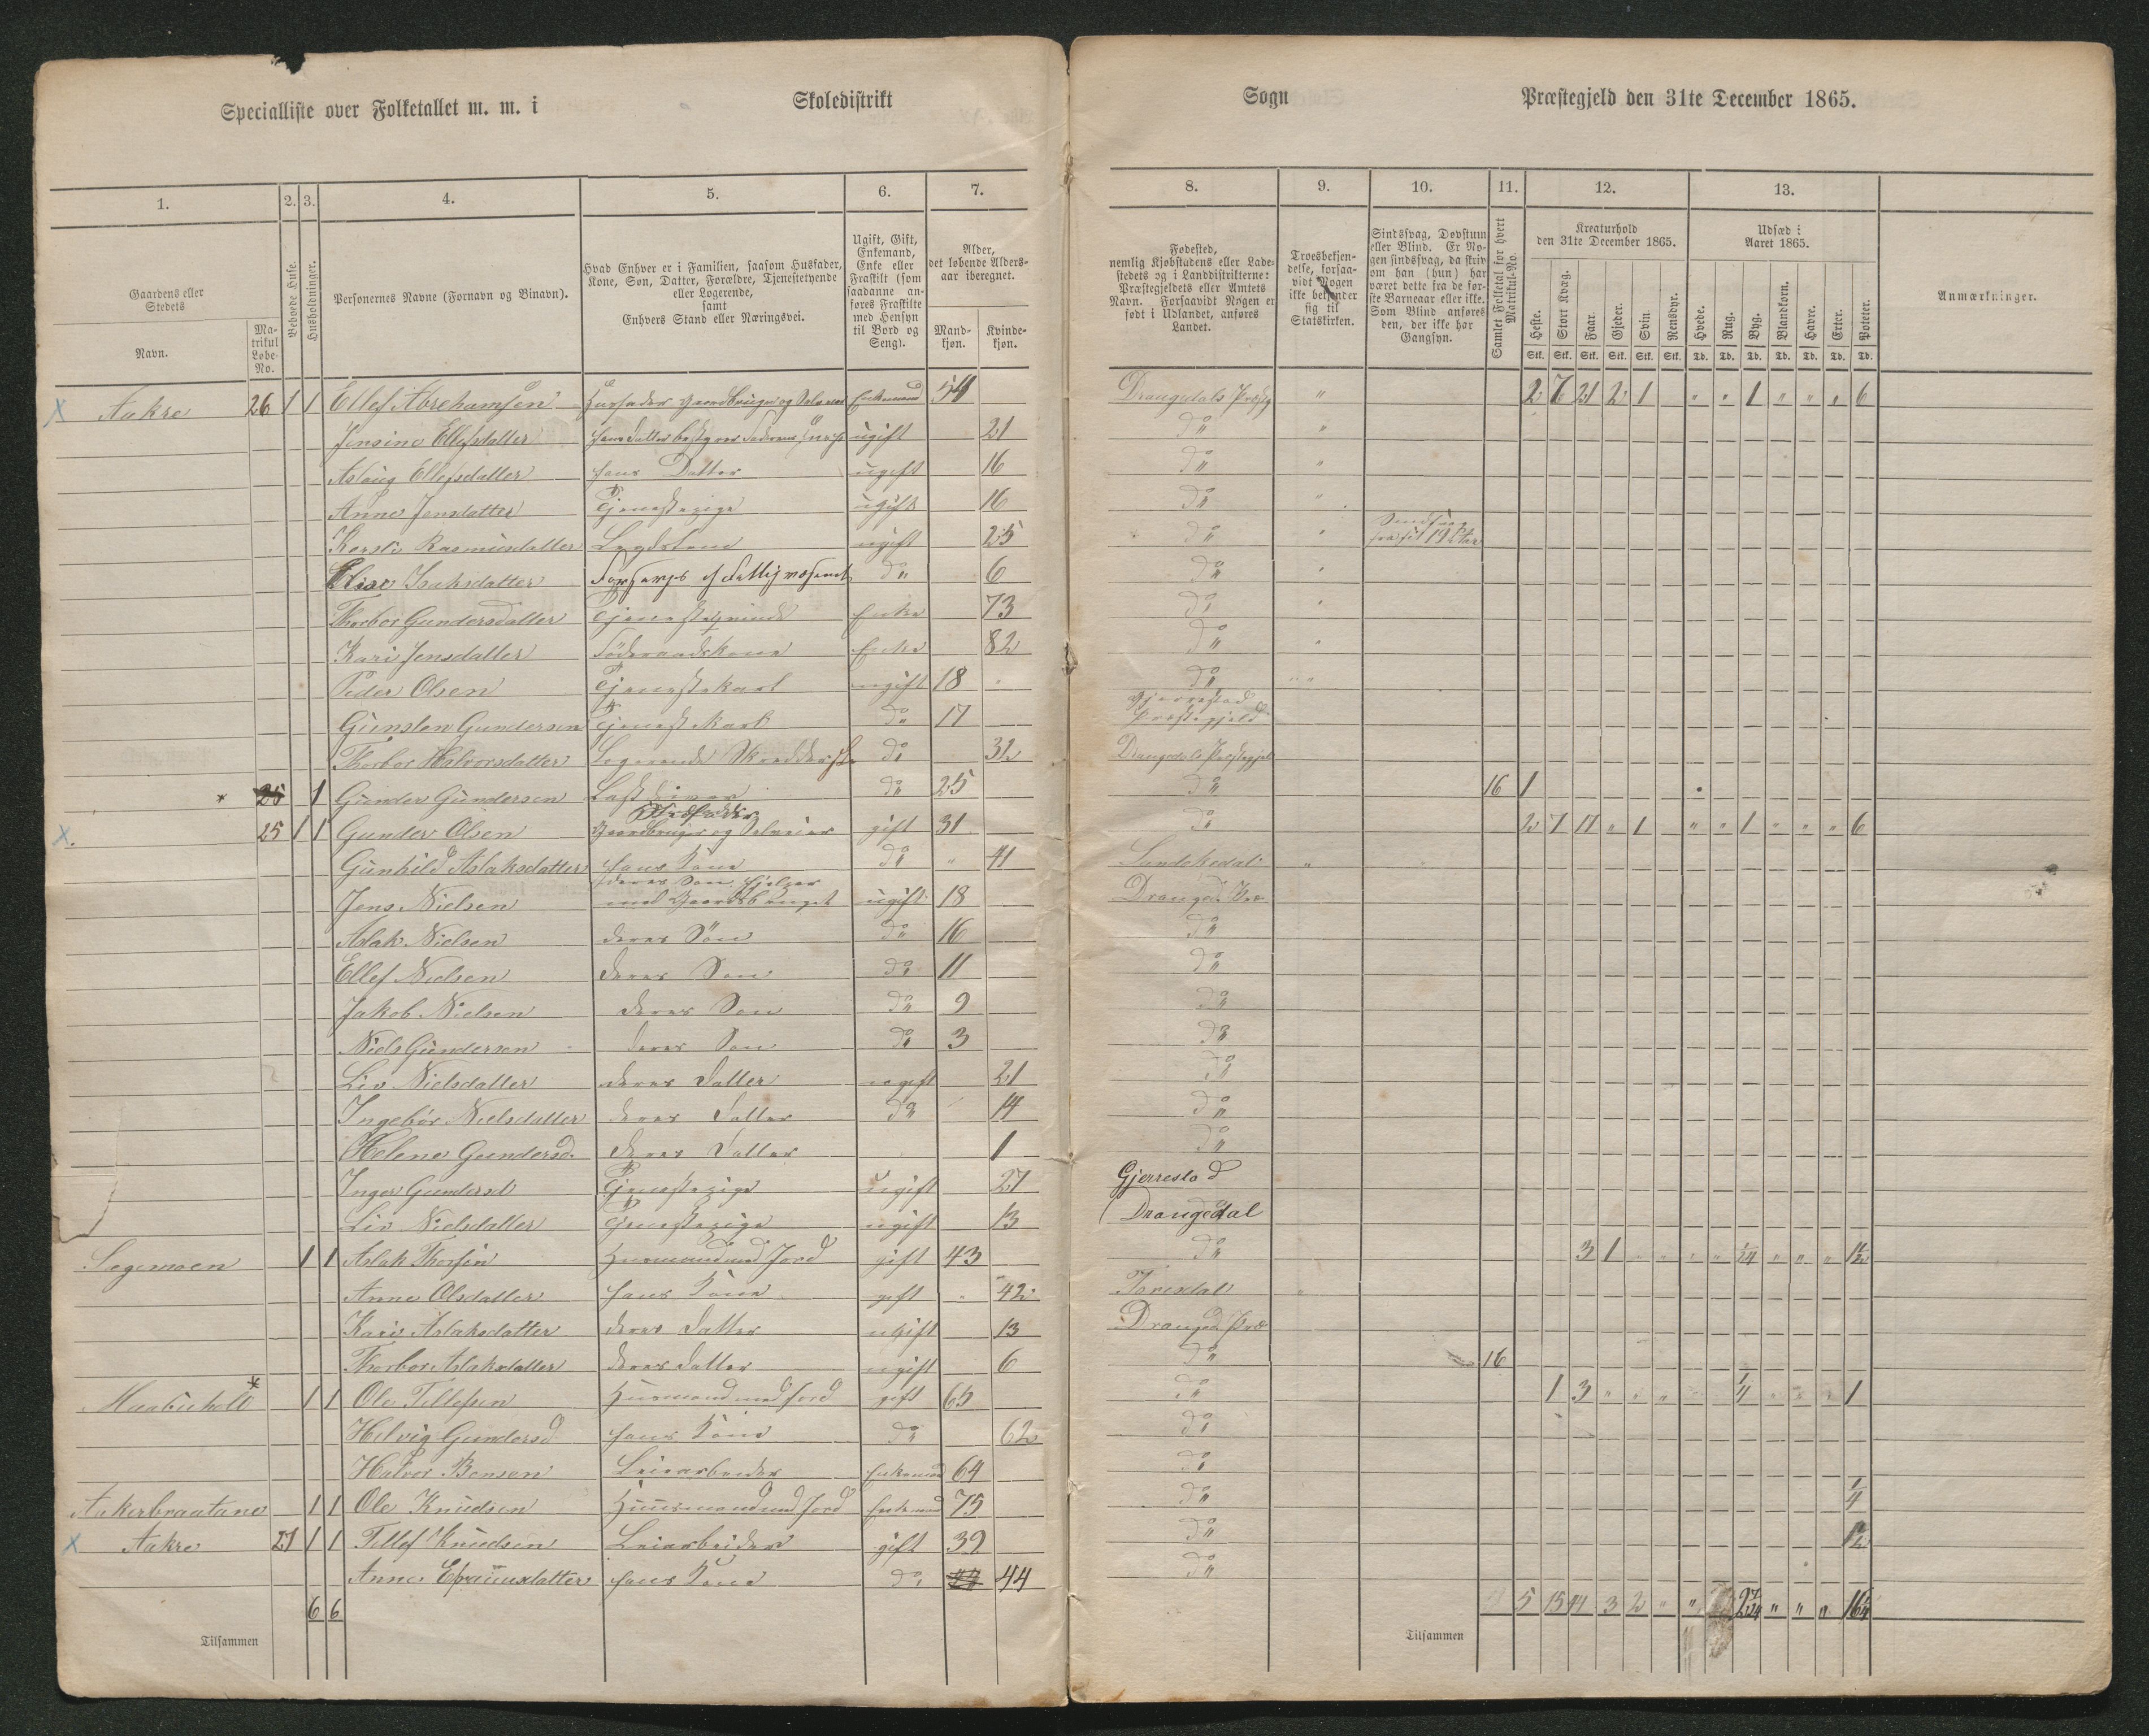 Specialliste over Folketallet m. m. i Skoledistrikt Sogn Præstegjeld den 31te December 1865.
1. 2. 3. 4. 5. 6. 7. 8. 9. 10. 11. 12. 13.
Gaardens eller Stedets
Navn.
Matrikul Løbe-No.
Beboede Huse.
Husholdninger.
Personernes Navne (Fornavn og Binavn).
Hvad Enhver er i Familien, saasom Husfader,
Kone, Søn, Datter, Forældre, Tjenestetyende
eller Logerende,
samt
Enhvers Stand eller Næringsvei.
Ugift, Gift,
Enkemand,
Enke eller
Fraskilt (som
saadanne an-
føres Fraskilte
med Hensyn
til Bord og
Seng).
Alder,
det løbende Alders-
aar iberegnet.
Mand-
kjøn.
Kvinde-
kjøn.
Fødested,
nemlig Kjøbstadens eller Lade-
stedets og i Landdistrikterne:
Præstegjeldets eller Amtets
Navn. Forsaavidt Nogen er
født i Udlandet, anføres
Landet.
Troesbekjen-
delse, forsaa-
vidt Nogen
ikke bekjender
sig til
Statskirken.
Sindssvag, Døvstum
eller Blind. Er No-
gen sindssvag, da skriv
om han (hun) har
været dette fra de før-
ste Barneaar eller ikke.
Som Blind anføres
den, der ikke har
Gangsyn.
Samlet Folketal for hvert
Matrikul-No.
Kreaturhold
den 31te December 1865.
Heste. Stort Kvæg. Faar. Gjeder. Svin. Rensdyr.
Stk. Stk. Stk. Stk. Stk. Stk.
Udsæd i
Aaret 1865.
Hvede. Rug. Byg. Blandkorn. Havre. Erter. Poteter.
Td. Td. Td. Td. Td. Td. Td.
Anmærkninger.
X Aakre 26 1 1 Ellef Abrehamsen Husfader Gaardbruger og Selveier Enkemand 54 Drangedals " 2 7 21 2 1 " " 1 " " " 6
Jensine Ellefsdatter hans Datter bestyrer Faderens ugift 21 do "
Aslaug Ellefsdatter hans Datter ugift 16 do "
Anne Jensdatter Tjenestepige ugift 16 do "
Kersti Rasmusdatter ugift 25 do " fra sit 19de Aar
Elise Isaksdatter Forsørges af Fattigvæsenet do 6 do "
Thorbor Gundersdatter Tjenestekvinde Enke 73 do "
Kari Jensdatter Föderaadskone Enke 82 do "
Peder Olsen Tjenestekarl ugift 18 do "
Gunsten Gundersen Tjenestekarl do 17 Gjerrestad Præstegjeld
Thorbor Halvorsdatter Logerende do 32 Drangedals Præstegjeld
* 25 1 Gunder Gundersen do 25 do 16 1
X. 25 1 1 Gunder Olsen Husfader Gaardbruger og Selveier gift 31 do 2 7 17 " 1 " " 1 " " " 6
Gunhild Aslaksdatter hans Kone do " 41 Sandokedal "
Jens Nielsen deres Søn hjelper med Gaardsbruget ugift 18 Dranged. Præ
Aslak Nielsen deres Søn do 16 do
Ellef Nielsen deres Søn do 11 do
Jakob Nielsen deres Søn do 9 do
Niels Gundersen deres Søn do 3 do
Liv Nielsdatter deres Datter ugift 21 do
Ingebor Nielsdatter deres Datter do 14 do
Helene Gundersd. deres Datter 1 do
Inger Gundersd Tjenestepige ugift 27 Gjerrestad
Liv Nielsdatter Tjenestepige ugift 13 Drangedal
Segemoen 1 1 Aslak Thorsen Husmand med Jord gift 43 do 3 1 " " " " 1/24 " " " 1 1/2
Anne Olsdatter hans Kone gift " 42 Torisdal "
Kari Aslaksdatter deres Datter ugift 13 Dranged Præ
Thorbor Aslaksdatter deres Datter ugift 6 do 16
* 1 1 Ole Tellefsen Husmand med Jord gift 65 do 1 3 " " " 1/4 " " " 1
Helvig Gundersd hans Kone do 62 do
Halvor Bensen Leiearbeider Enkemand 64 do
Aakerbraatane 1 1 Ole Knudsen Huusmand med Jord Enkemand 75 do 1/4
X Aakre 27 1 1 Tellef Knudsen Leiarbeider gift 39 do 1/2
Anne Epraimsdatter hans Kone do 44 do
6 6 5 15 3 2 " " " " " 16 1/4
Tilsammen Tilsammen